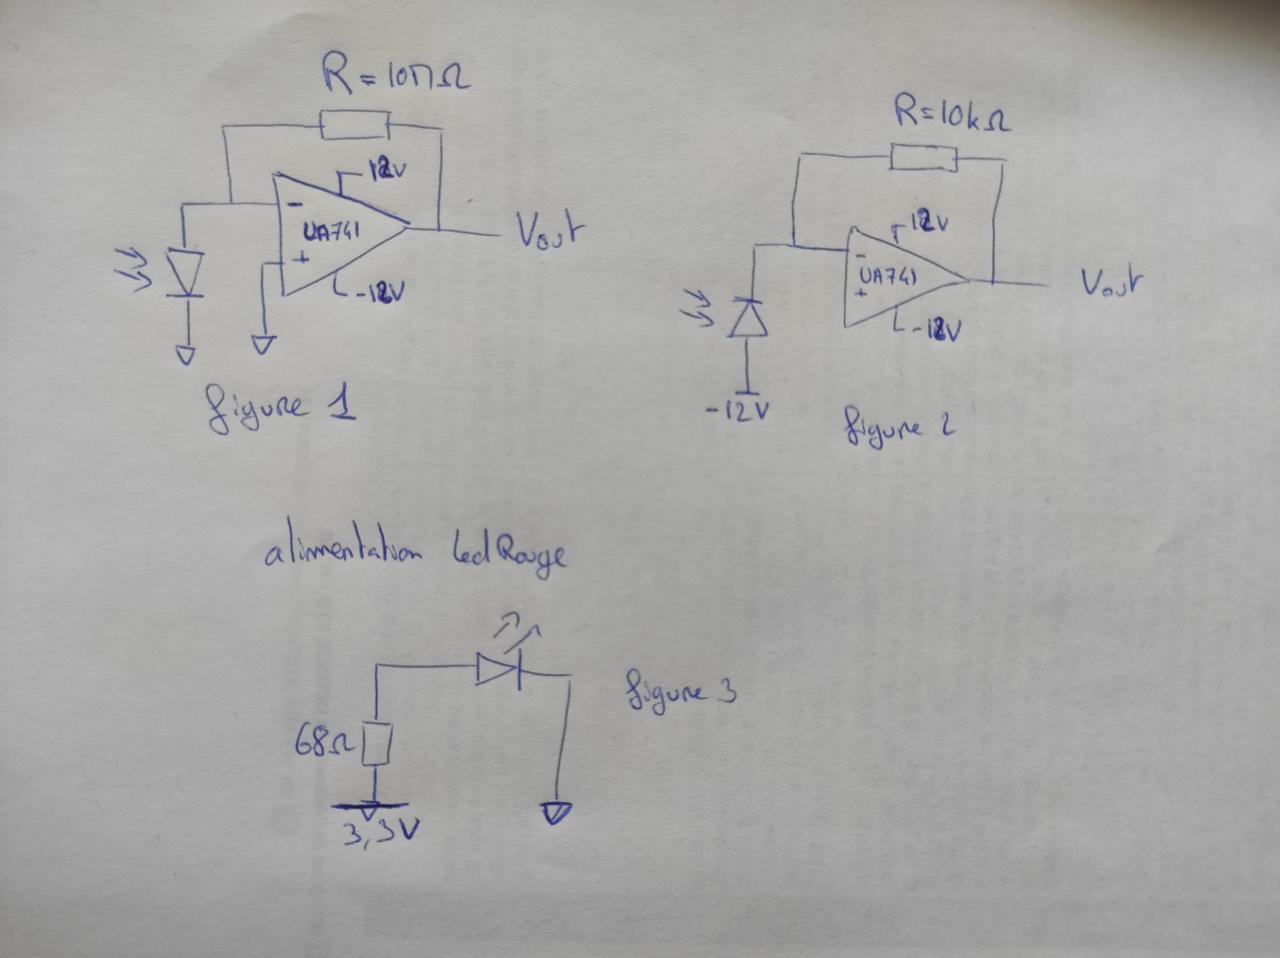 R=10MΩ
12V
-
UA741
+
-12V
Vout
figure 1
R=10kΩ
12V
-
UA741
+
-12V
Vout
-12V
figure 2
alimentation Led Rouge
figure 3
68Ω
3,3V